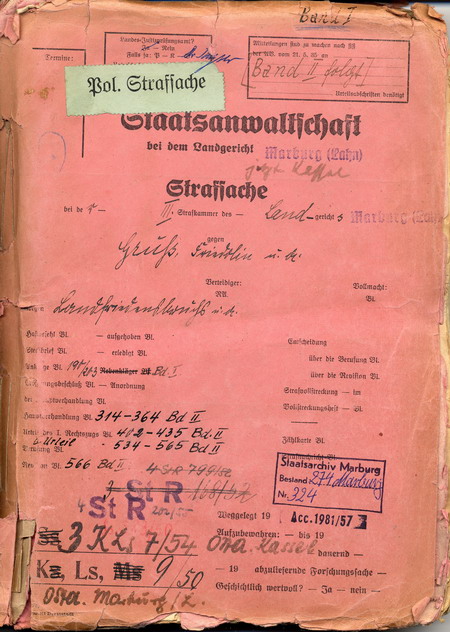 Band I
Termine:
Landes-Justizprüfungsamt?
Ja — Nein
Falls ja: P — K
Mitteilungen sind zu machen nach §§
der AV. vom 21. 5. 35 an
Band II folgt
Urteilsabschriften benötigt
Pol. Strafsache
Staatsanwaltschaft
bei dem Landgericht Marburg (Lahn)
jetzt Kassel
Strafsache
bei de r — III. Strafkammer des — Land-gerichts Marburg (Lahn)
gegen
Gruß, Friedolin u. a.
Verteidiger: Vollmacht:
RA. Bl.
wegen Landfriedensbruchs u. a.
Haftbefehl Bl. — aufgehoben Bl.
Steckbrief Bl. — erledigt Bl.
Anklage Bl. 198/263 Nebenkläger Bl. Bd. I
Eröffnungsbeschluß Bl. — Anordnung
der Hauptverhandlung Bl.
Hauptverhandlung Bl. 314-364 Bd II
Urteil des I. Rechtszugs Bl. 402-435 Bd. II
u. Urteil
Berufung Bl. - 534-565 Bd. II
Revision Bl. 566 Bd II
Entscheidung
über die Berufung Bl.
über die Revision Bl.
Strafvollstreckung — im
Vollstreckungsheft — Bl.
Zählkarte Bl.
Staatsarchiv Marburg
Bestand 274 Marburg
Nr. 394
4 StR 799/52
StR 168/52
4 StR 202/55
Weggelegt 19
Acc. 1981/57
Aufzubewahren: — bis 19
3 KLs 7/54 OStA. Kassel
dauernd —
Ks, Ls, Ms 9/50
— 19 abzuliefernde Forschungssache —
Geschichtlich wertvoll? — Ja — nein —
OStA. Marburg/L.